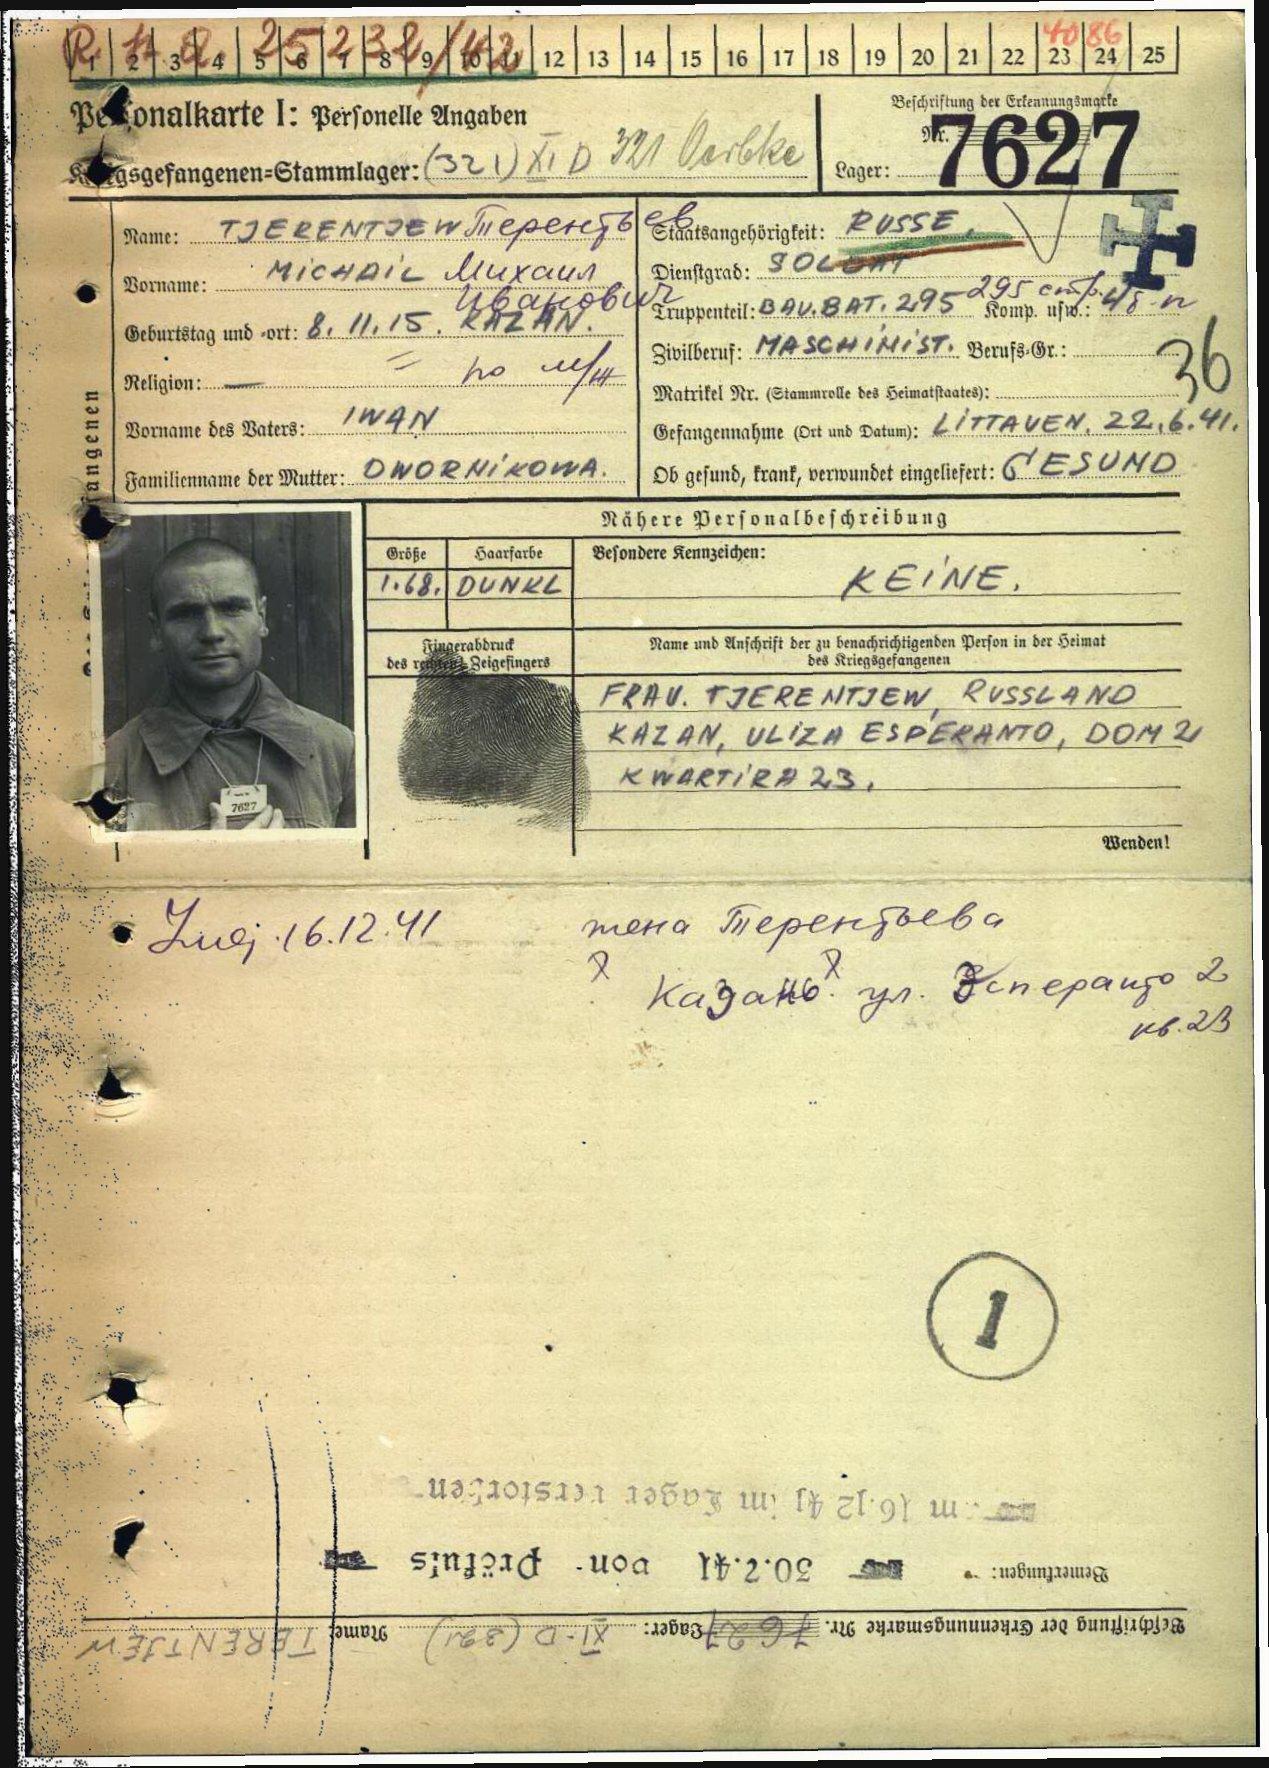 R. H. R. 25232/42 4086
1 2 3 4 5 6 7 8 9 10 11 12 13 14 15 16 17 18 19 20 21 22 23 24 25
Personalkarte I: Personelle Angaben
Beschriftung der Erkennungsmarke
Nr. 7627
Kriegsgefangenen-Stammlager: (321) XI D 321 Oerbke
Lager:
Name: TJERENTJEW Терентьев
Vorname: MICHAIL Михаил
Иванович
Geburtstag und -ort: 8.11.15. KAZAN.
Religion: —
Vorname des Vaters: IWAN
Familienname der Mutter: DWORNIKOWA.
Staatsangehörigkeit: RUSSE.
Dienstgrad: SOLDAT
Truppenteil: BAU.BAT. 295 295 стр. Komp. usw.: 4
Zivilberuf: MASCHINIST. Berufs-Gr.:
36
Matrikel Nr. (Stammrolle des Heimatstaates):
Gefangennahme (Ort und Datum): LITTAUEN. 22.6.41.
Ob gesund, krank, verwundet eingeliefert: GESUND
Nähere Personalbeschreibung
Größe Haarfarbe Besondere Kennzeichen:
1.68. DUNKL KEINE.
Fingerabdruck
des rechten Zeigefingers
Name und Anschrift der zu benachrichtigenden Person in der Heimat
des Kriegsgefangenen
FRAU. TJERENTJEW, RUSSLAND
KAZAN, ULIZA ESPERANTO, DOM 2
KWARTIRA 23.
7627
Wenden!
16.12.41
жена Терентьева
Казань. ул. Эсперанто 2
кв. 23
1
m 16.12 41 im Lager verstorben
Bemerkungen: 30.7.41 von Prökuls
Beschriftung der Erkennungsmarke Nr. 7627 Lager: XI-D (321) Name: TERENTJEW